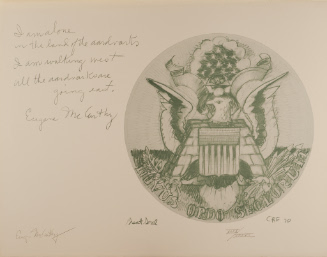 I am alone
in the land of the aardvarks
I am walking west
all the aardvarks are
going east.
Eugene McCarthy
NOVUS ORDO SECLORUM